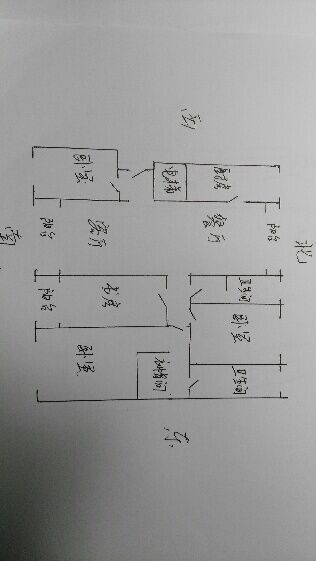 西
卧室
厨房
阳台
客厅
餐厅
阳台
南
北
阳台
书房
卫生间
卧室
卧室
卫生间
东